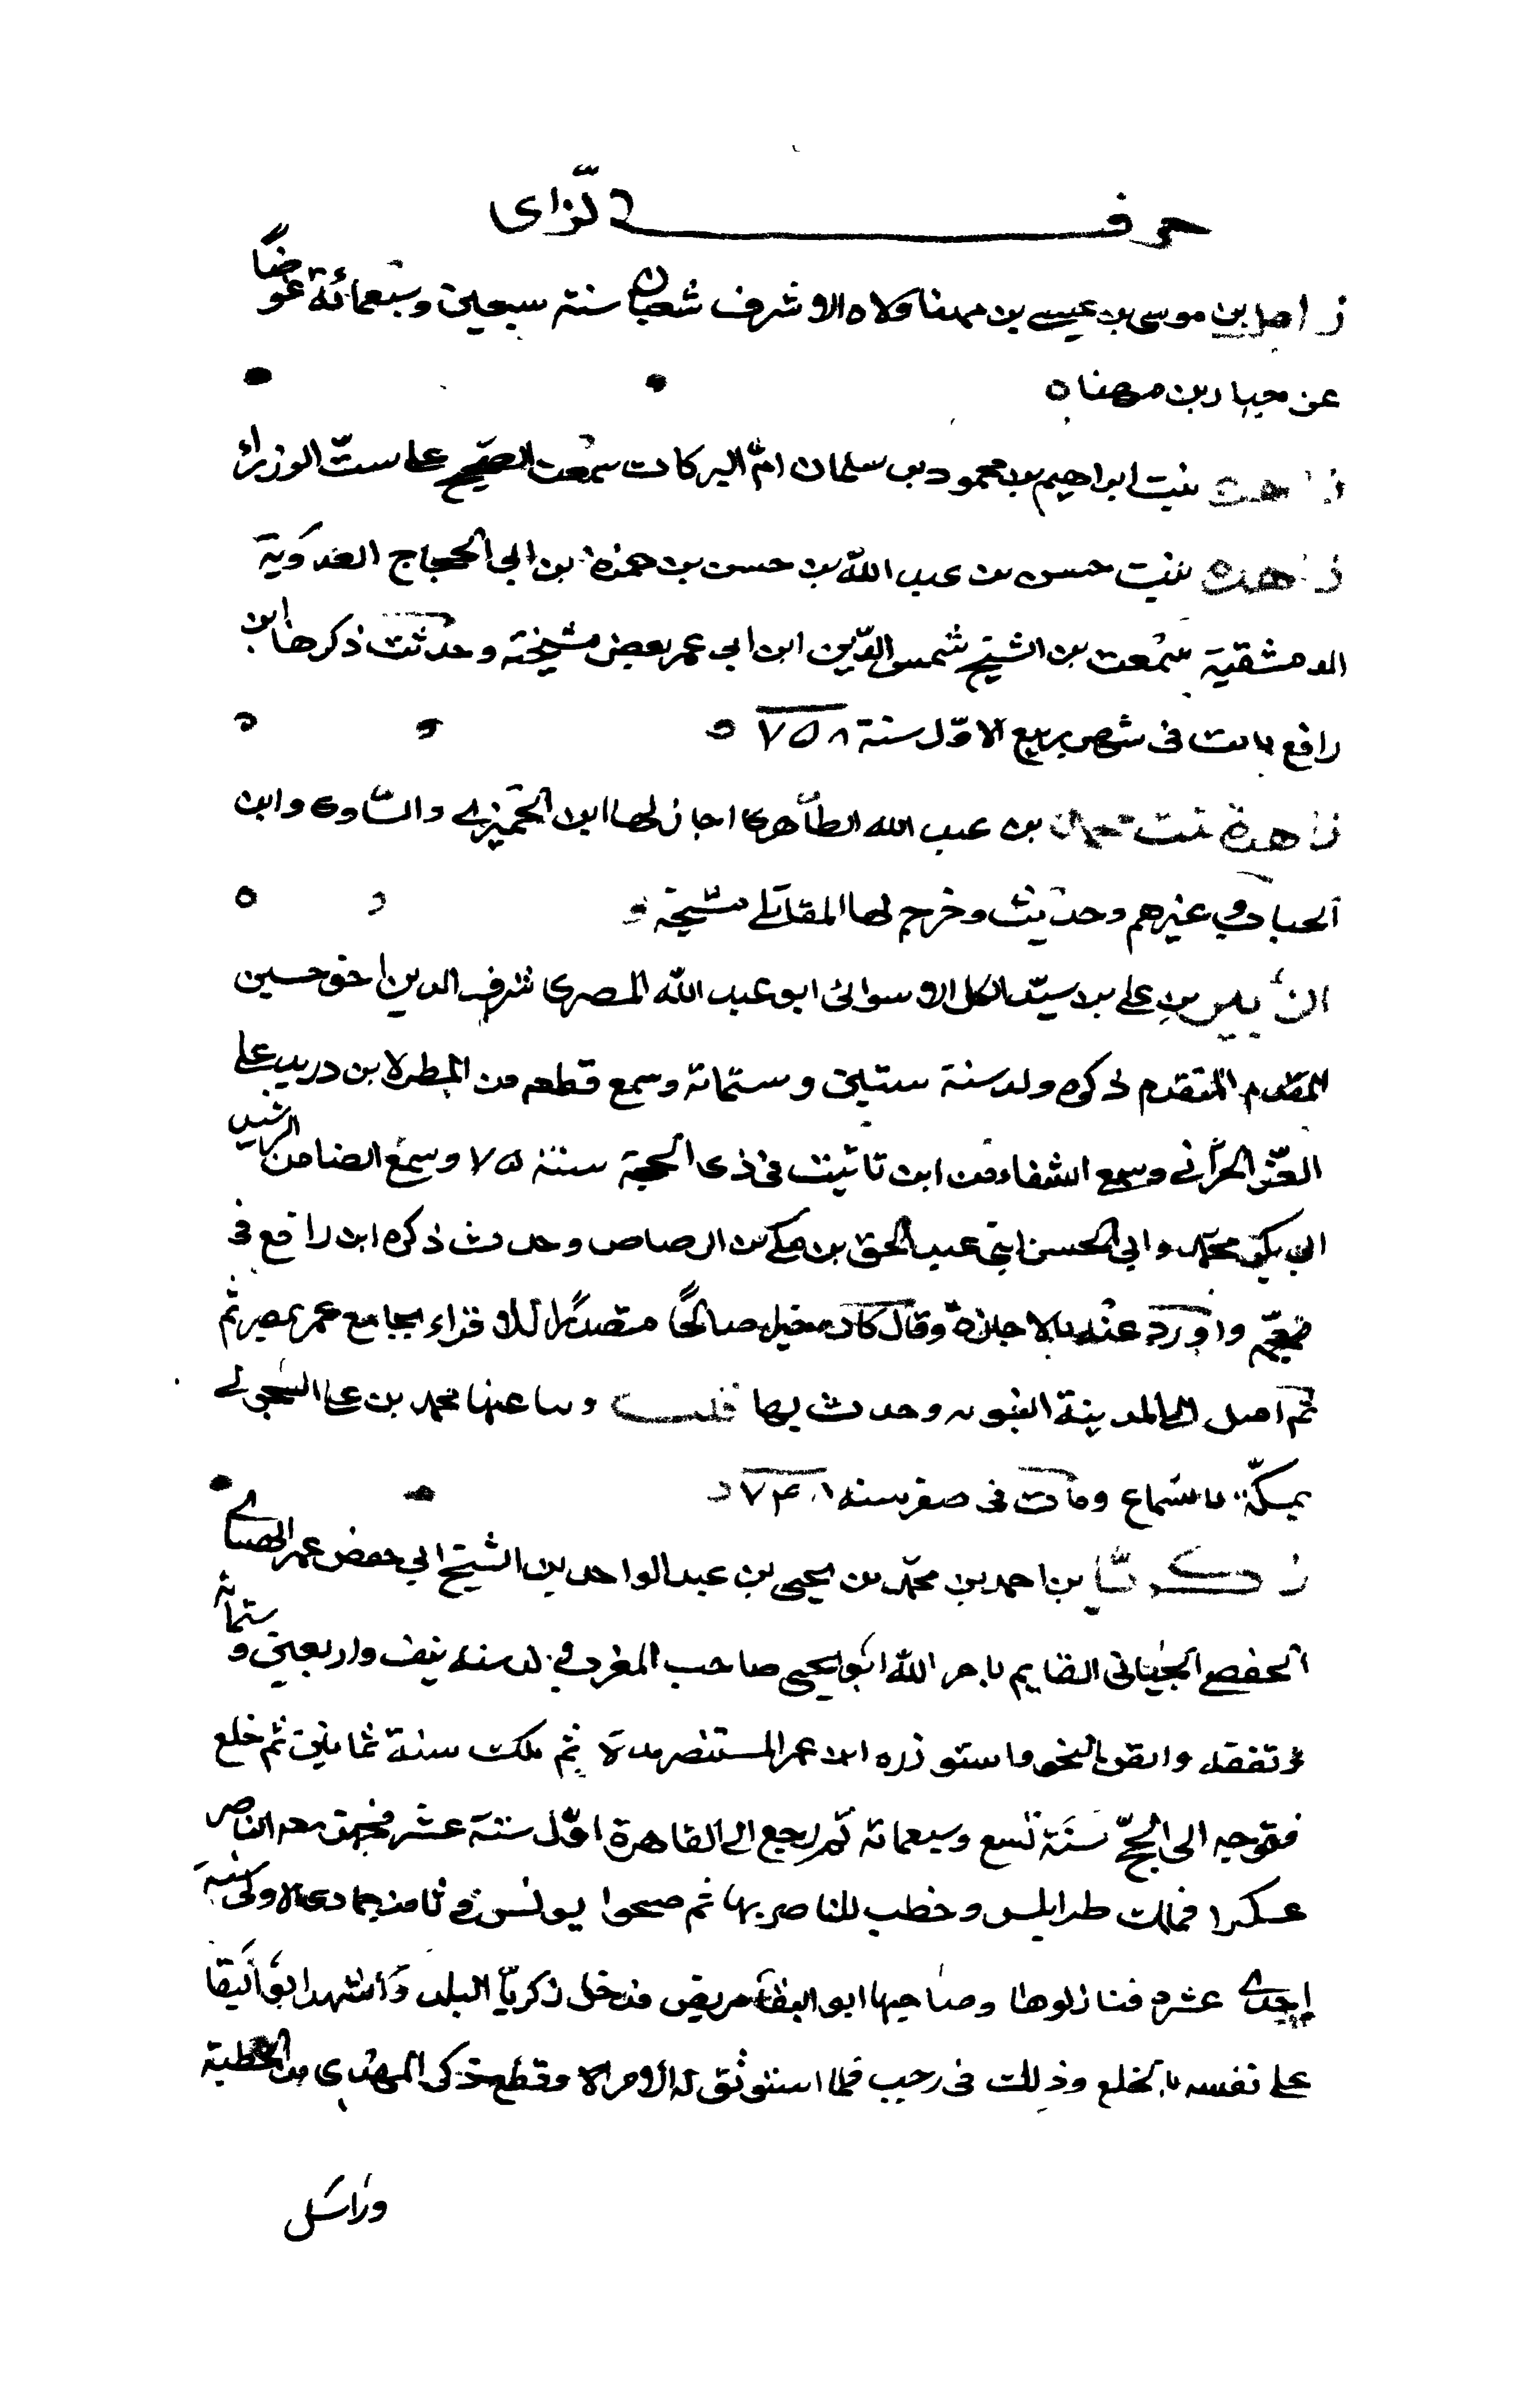 حرف الزاى
زامل بن موسى بن عيسى بن مهنا ولاه الاشرف شعبان سنة سبعين وسبعمائة عوضًا
عن حيار بن مهنا ه
زاهدة بنت ابراهيم بن محمود بن سلمان امّ البركات سمعت الصحيح على ستّ الوزراء
زاهدة بنت حسن بن عبد اللّه بن حسن بن حمزة بن ابى الحجاج العدوية
الدمشقية سمعت من الشيخ شمس الدّين ابن ابى عمر بعض مشيخته وحدثت ذكرها ابن
رافع ماتت فى شهر ربيع الاوّل سنة ٧٥٨
زاهدة بنت محمد بن عبد الله الظاهرى اجاز لها ابن الجمّيزى والساوى وابن
الحباب وغيرهم وحدثت وخرج لها المقاتلى مشيخة
الزبير بن على بن سيّد الكل الاسوانى ابو عبد اللّه المصرى شرف الدين اخو حسين
المقدم المتقدم ذكره ولد سنة ستين وستمائة وسمع قطعه من المطر لابن دريد على
العزّ الحرّانى وسمع الشفاء من ابن تاتيت فى ذى الحجة سنة ٧٥ وسمع ايضا من الرشيد
ابى بكر محمّد وابى الحسن ابنى عبد الحق بن مكى بن الرصاص وحدث ذكره ابن رافع فى
معجمه واورد عنه بالاجازة وقال كان خيرا صالحًا متصدرًا للاقراء بجامع عمر بمصر ثم
ثم امصل الى المدينة النبويه وحدث بها قلت وساعنها محمد بن على السحولى
بمكّة بالسّماع ومات فى صفر سنه ٧٤٨
زكريّا بن احمد بن محمّد بن يحيى بن عبد الواحد بن الشيخ ابى حفص عمر الهنتاتى
الحفصى اللحيانى القايم بامر اللّه ابو يحيى صاحب المغرب ولد سنه نيف واربعين وستمائة
وتفقه واتقن النحو واستوزره ابن عمر المستنصر مدة ثم ملك سنة ثمانين ثم خلع
فتوجه الى الحجّ سَنَة تسع وسبعمائة ثم رجع الى القاهرة اوّل سنة عشر فجهز معه الناصر
عسكرا فملك طرابلس وخطب للناصر بها ثم صبحوا يونس فى ثامن جمادى الاولى سنة
إحدى عشرة فنازلوها وصاحبها ابو البقا مريض فدخل زكريّا البلد واشهد ابو البقا
على نفسه بالخلع وذلك فى رجب فلما استوثق له الامر الا وقطع ذكر المهدى من الخطبة
وراسل